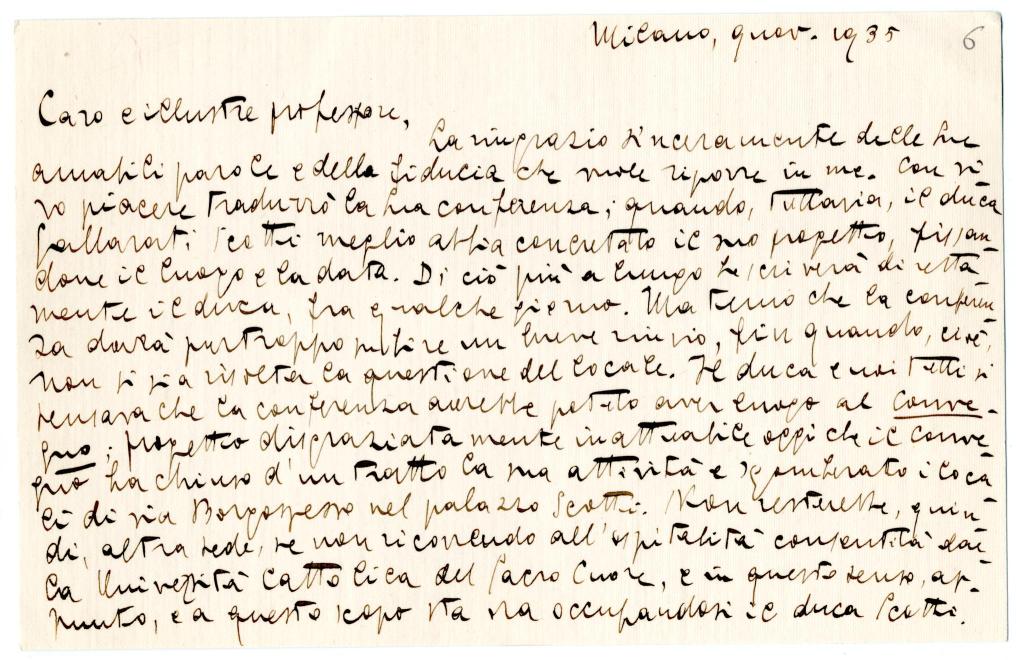 Milano, 9 nov. 1935
6
Caro e illustre professore,
La ringrazio sinceramente delle Sue
amabili parole e della fiducia che vuole riporre in me. Con vi
vo piacere tradurrò la Sua conferenza; quando, tuttavia, il duca
Gallarati Scotti meglio abbia concretato il suo progetto, fissan
done il luogo e la data. Di ciò più a lungo Le scriverà diretta
mente il duca, fra qualche giorno. Ma temo che la conferen
za dovrà purtroppo subire un breve rinvio, fin quando, cioè,
non si sia risolta la questione del locale. Il duca e noi tutti si
pensava che la conferenza avrebbe potuto aver luogo al Conve-
gno; progetto disgraziatamente inattuabile oggi che il Conve
gno ha chiuso d'un tratto la sua attività e sgomberato i loca
li di via Borgospesso nel palazzo Scotti. Non resterebbe, quin
di, altra sede, se non ricorrendo all'ospitalità consentita dal
la Università Cattolica del Sacro Cuore, e in questo senso, ap-
punto, e a questo scopo sta ora occupandosi il duca Scotti.